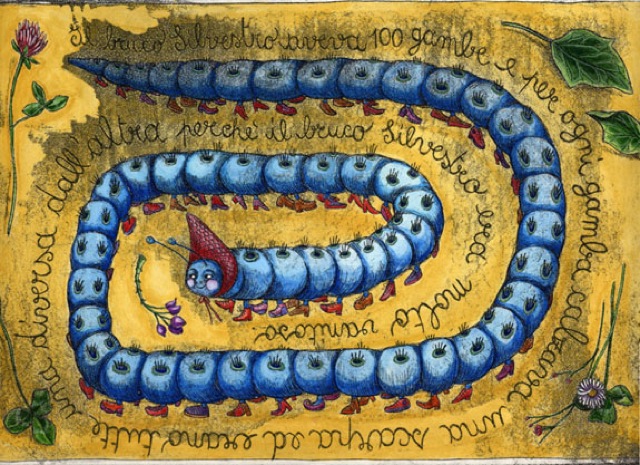 il bruco Silvestro aveva 100 gambe e per ogni gamba calzava una scarpa ed erano tutte una diversa dall'altra perché il bruco Silvestro era molto vanitoso.